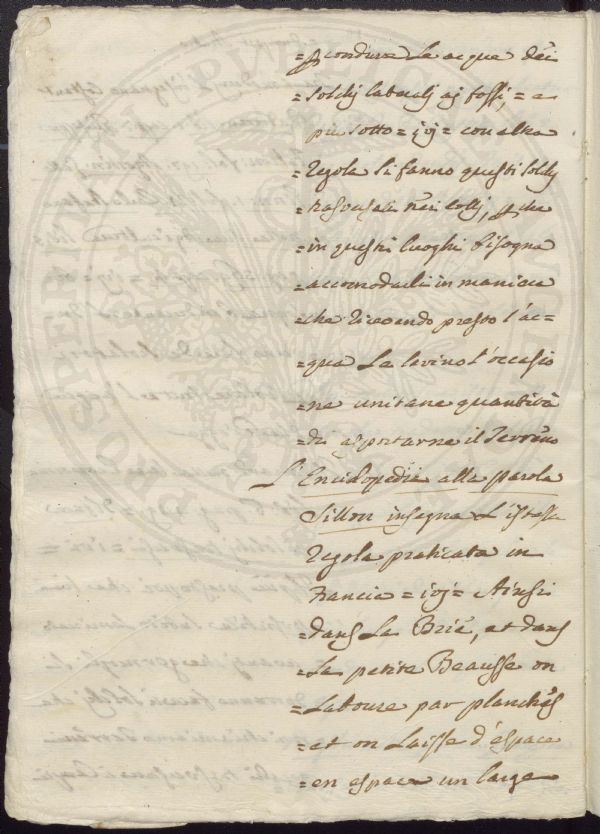 = condure la acque dei
= Solchi laterali ai fossi, = a
più sotto = ivi = con altra
= regola si fanno questi solchi
= trasversali nei colli, che
= in questi luoghi bisogna
= accomodarli in maniera
= che ricevendo presto l'ac=
= qua La levino l'occasio
= ne unitane quantità
= di asportarne il Terreno
L'Enciclopedia alla parola
Sillon insegna L'istessa
regola praticata in
Francia = ivi = Ainsi
= dans La Brie, et dans
= La petite Beausse on
= Laboure par planches
= et on Laisse d'espace
= en espace un large